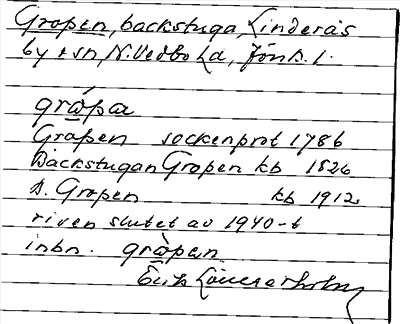 Gropen, backstuga, Linderås
by + sn, N. Vedbo hd, Jön. l.
grå̀pa
Grapen sockenprot 1786
Backstugan Gropen kb 1826
B. Gropen kb 1912
riven slutet av 1940-t
inbn. grå̀pen
Erik